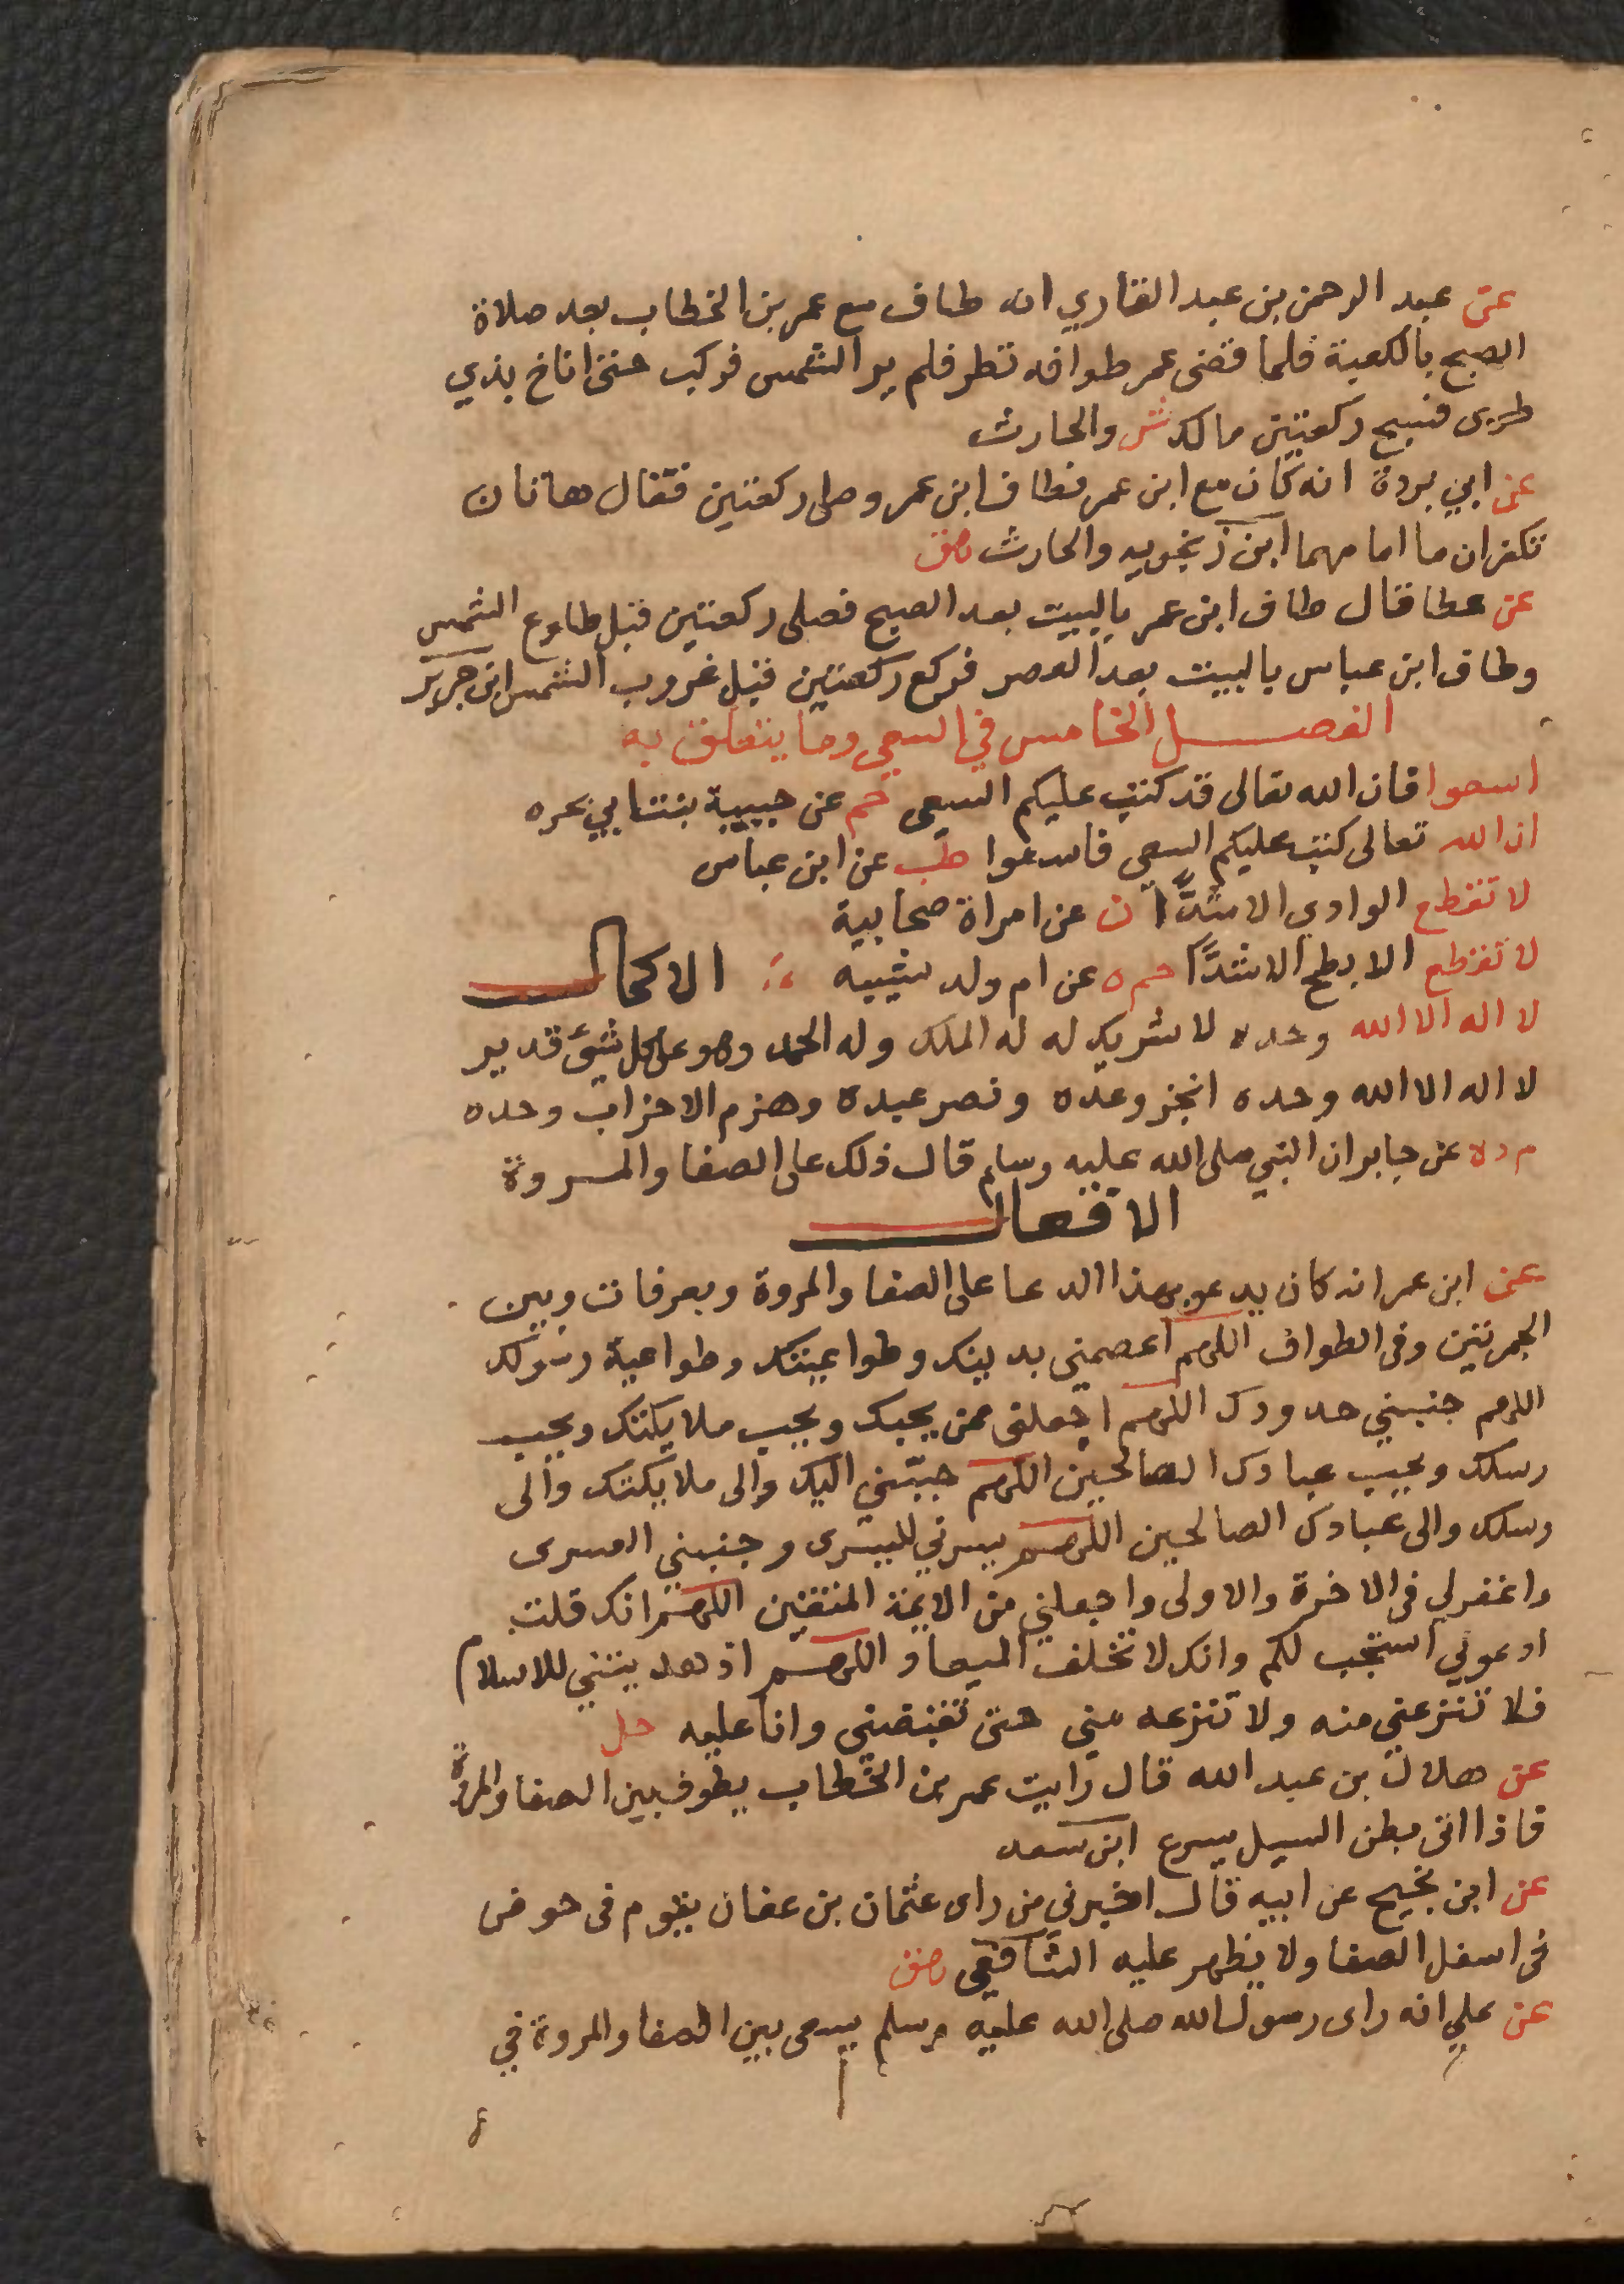 عن عبد الرحمن بن عبد القاري انه طاف مع عمر بن الخطاب بعد صلاة
الصبح بالكعبة فلما قضى عمر طوافه نظر فلم ير الشمس فركب حتى اناخ بذي
طوى فسبح ركعتين مالك ش والحارث
عن ابي بردة انه كان مع ابن عمر فطاف ابن عمر وصلى ركعتين فقال هاتان
تكفران ما امامهما ابن زنجويه والحارث وصق
عن عطا قال طاف ابن عمر بالبيت بعد الصبح فصلى ركعتين قبل طلوع الشمس
وطاف ابن عباس بالبيت بعد العصر فركع ركعتين قبل غروب الشمس ابن جرير
الفصل الخامس في السعي وما يتعلق به
اسعوا فان الله تعالى قد كتب عليكم السعي حم عن حبيبة بنت ابي تجراه
ان الله تعالى كتب عليكم السعي فاسعوا طب عن ابن عباس
لا تقطع الوادي الا شدًّا ن عن امراة صحابية
لا تقطع الابطح الا شدًّا حم ه عن ام ولد شيبه الاكمال
لا اله الا الله وحده لا شريك له له الملك وله الحمد وهو على كل شيئ قدير
لا اله الا الله وحده انجز وعده ونصر عبده وهزم الاحزاب وحده
م د ه عن جابر ان النبي صلى الله عليه وسلم قال ذلك على الصفا والمروة
الافعال
عن ابن عمر انه كان يدعو بهذا الدعا على الصفا والمروة وبعرفات وبين
الجمرتين وفى الطواف اللهم اعصمني بدينك وطواعيتك وطواعية رسولك
اللهم جنبني حدودك اللهم اجعلنى ممن يحبك ويحب ملايكتك ويحب
رسلك ويحب عبادك الصالحين اللهم حببني اليك والى ملايكتك والى
رسلك والى عبادك الصالحين اللهم يسرني لليسرى وجنبني العسرى
واغفر لي فى الاخرة والاولى واجعلني من الايمة المتقين اللهم انك قلت
ادعوني استجب لكم وانك لا تخلف الميعاد اللهم اذ هديتني للاسلام
فلا تنزعني منه ولا تنزعه مني حتى تقبضني وانا عليه حل
عن هلال بن عبد الله قال رايت عمر بن الخطاب يطوف بين الصفا والمروة
فاذا اتى بطن السيل يسرع ابن سعد
عن ابن نجيح عن ابيه قال اخبرني من راى عثمان بن عفان يقوم فى حوض
فى اسفل الصفا ولا يظهر عليه الشافعي وصق
عن علي انه راى رسول الله صلى الله عليه وسلم يسعى بين الصفا والمروة في